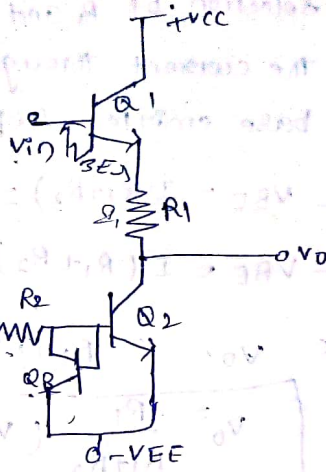 +VCC
Q1
Vin
BEJ
R1
VO
R2
Q2
QB
-VEE